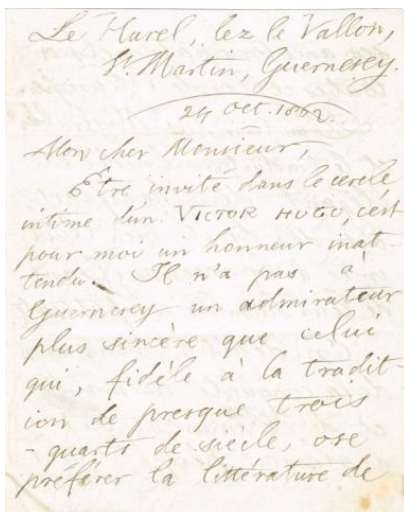 Le Hurel, lez le Vallon,
St Martin, Guernesey.
24 Oct. 1862.
Mon cher Monsieur,
Être invité dans le cercle
intime d'un VICTOR HUGO, c'est
pour moi un honneur inat-
tendu. Il n'a pas à
Guernesey un admirateur
plus sincère que celui
qui, fidèle à la tradit-
ion de presque trois
-quarts de siècle, ose
préférer la littérature de